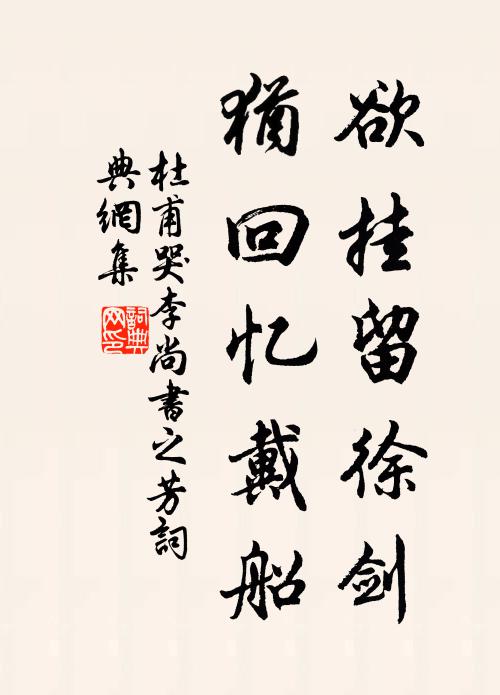 欲挂留徐剑
猶回忆戴船
杜甫哭李尚書之芳詞
典網集
詞典网印